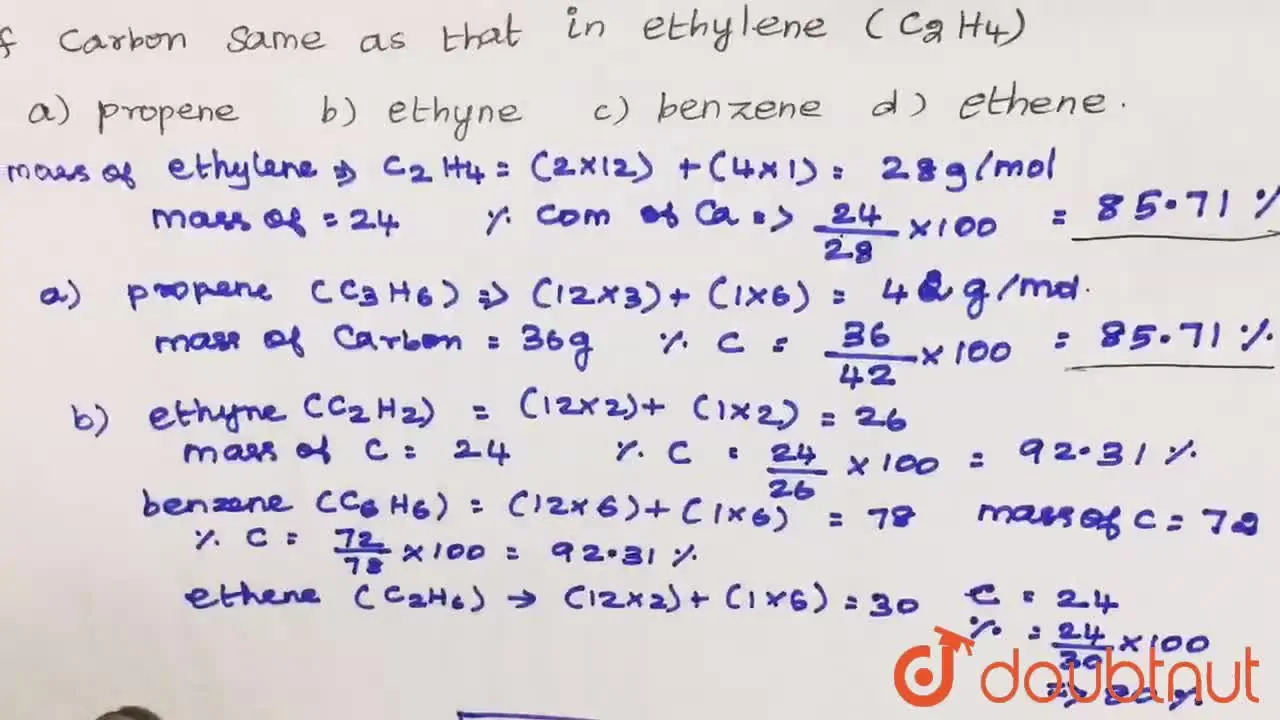 f Carbon Same as that in ethylene (C2H4)
a) propene b) ethyne c) benzene d) ethene.
mass of ethylene ⇒ C2H4 = (2×12) + (4×1) = 28g/mol
mass of = 24 % Com of Ca => 24/28 ×100 = 85.71 %
a) propene (C3H6) => (12×3) + (1×6) = 42 g/mol.
mass of Carbon = 36g % C = 36/42 ×100 = 85.71 %
b) ethyne (C2H2) = (12×2) + (1×2) = 26
mass of C = 24 % C = 24/26 ×100 = 92.31 %
benzene (C6H6) = (12×6) + (1×6) = 78 mass of C = 72
% C = 72/78 ×100 = 92.31 %
ethene (C2H6) → (12×2) + (1×6) = 30 C = 24
% = 24/30 ×100
=> 80 %
doubtnut